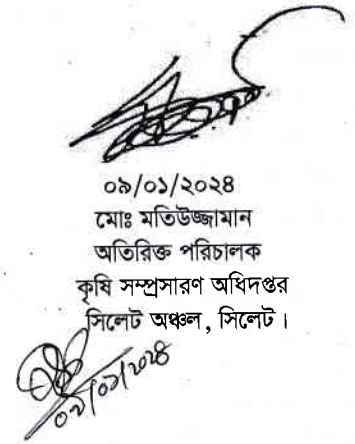 ০৯/০১/২০২৪
মোঃ মতিউজ্জামান
অতিরিক্ত পরিচালক
কৃষি সম্প্রসারণ অধিদপ্তর
সিলেট অঞ্চল, সিলেট।
০৯/০১/২০২৪